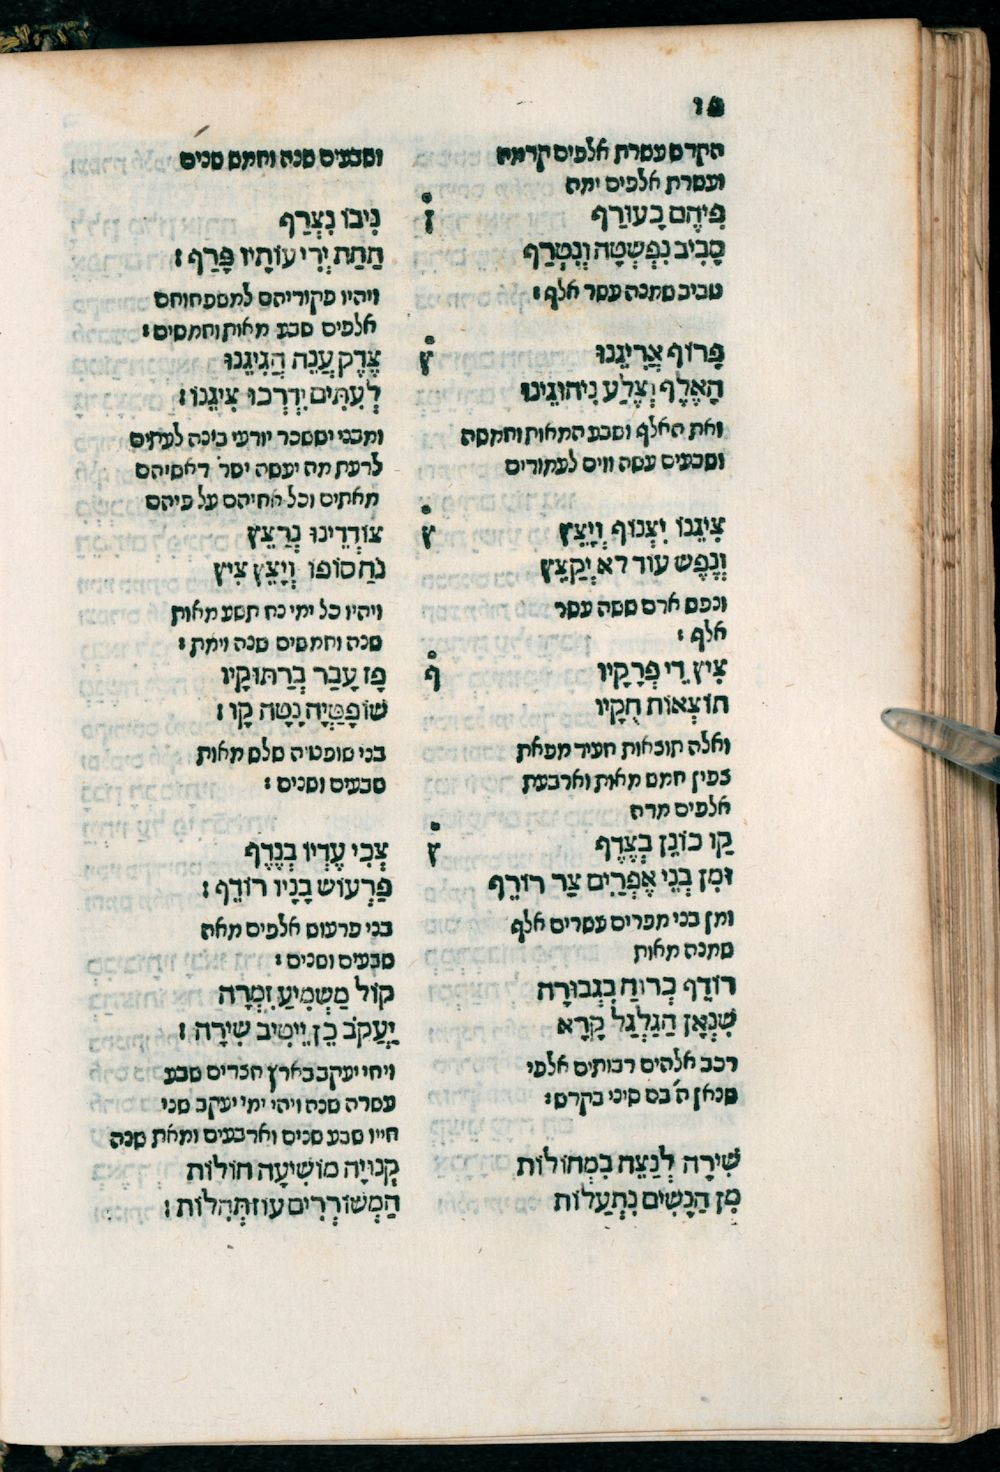 הקדם עשרת אלפים קדמה
ועשרת אלפים ימה
פִיהֶם כָעוֹרַף
סָבִיב נִפְשְׁטָה וְנִטְרַף
סביב שמנה עשר אלף:
פָרוֹף אֲרִיגֵנוּ
הָאֶלֶף וְצֶלַע נִיהוּגֵינוּ
ואת האלף ושבע המאות וחמשה
ושבעים עשה ווים לעמודים
צִיגֵנוּ יִצְנוֹף וְיָצֵיץ
וְנֶפֶשׁ עוֹד לֹא יְקַצֵץ
ונפש אדם ששה עשר
אלף:
צִיץ דֵי פְרָקָיו
תוֹצְאוֹת חֻקָיו
ואלה תוצאות העיר מפאת
צפון חמש מאות וארבעת
אלפים מדה
קַו כוֹנֵן בְצֶדֶף
וּמִן בְנֵי אֶפְרַיִם צַר רוֹדֵף
ומן בני אפרים עשרים אלף
שמנה מאות
רוֹדֵף כְרוּחַ בִגְבוּרָה
שִׁנְאָן הַגַלְגַל קָרָא
רכב אלהים רבותים אלפי
שנאן ה' בם סיני בקדש:
שִׁירָה לְנַצֵחַ בִמְחוֹלוֹת
מִן הַנָשִׁים נִתְעַלוֹת
ושבעים שנה וחמש שנים
נִיבוֹ נִצְרַף
הַחַת יְרִי עוֹתָיו פָרַף:
ויהיו פקודיהם למשפחותם
אלפים שבע מאות וחמשים:
צֶדֶק עֲנֵה הֲגִיגֵנוּ
לְעִתִּים יִדְרְכוּ צִיגֵנוּ:
ומבני יששכר יודעי בינה לעתים
לדעת מה יעשה ישר' ראשיהם
מאתים וכל אחיהם על פיהם
צוֹדְדֵינוּ נְרַצֵץ
נֹחַ סוֹפוֹ וְיָצֵץ צִיץ
ויהיו כל ימי נח תשע מאות
שנה וחמשים שנה וימת:
פָז עָבַר בְרַתּוּקָיו
שׁוֹפָטְיָה נָטָה קָו:
בני שפטיה שלש מאות
שבעים ושנים:
צְכִי עֶדְיוֹ בְנֶדֶף
פַרְעוֹשׁ בָנָיו רוֹדֵף:
בני פרעוש אלפים מאה
שבעים ושנים:
קוֹל מַשְׁמִיעַ זִמְרָה
יַעֲקֹב כֵן יֵיטִיב שִׁירָה:
ויחי יעקב בארץ מצרים שבע
עשרה שנה ויהי ימי יעקב שני
חייו שבע שנים וארבעים ומאת שנה
קְנוּיָה מוֹשִׁיעָה חוֹלוֹת
הַמְשׁוֹרְרִים עוֹז תְּהִלוֹת: